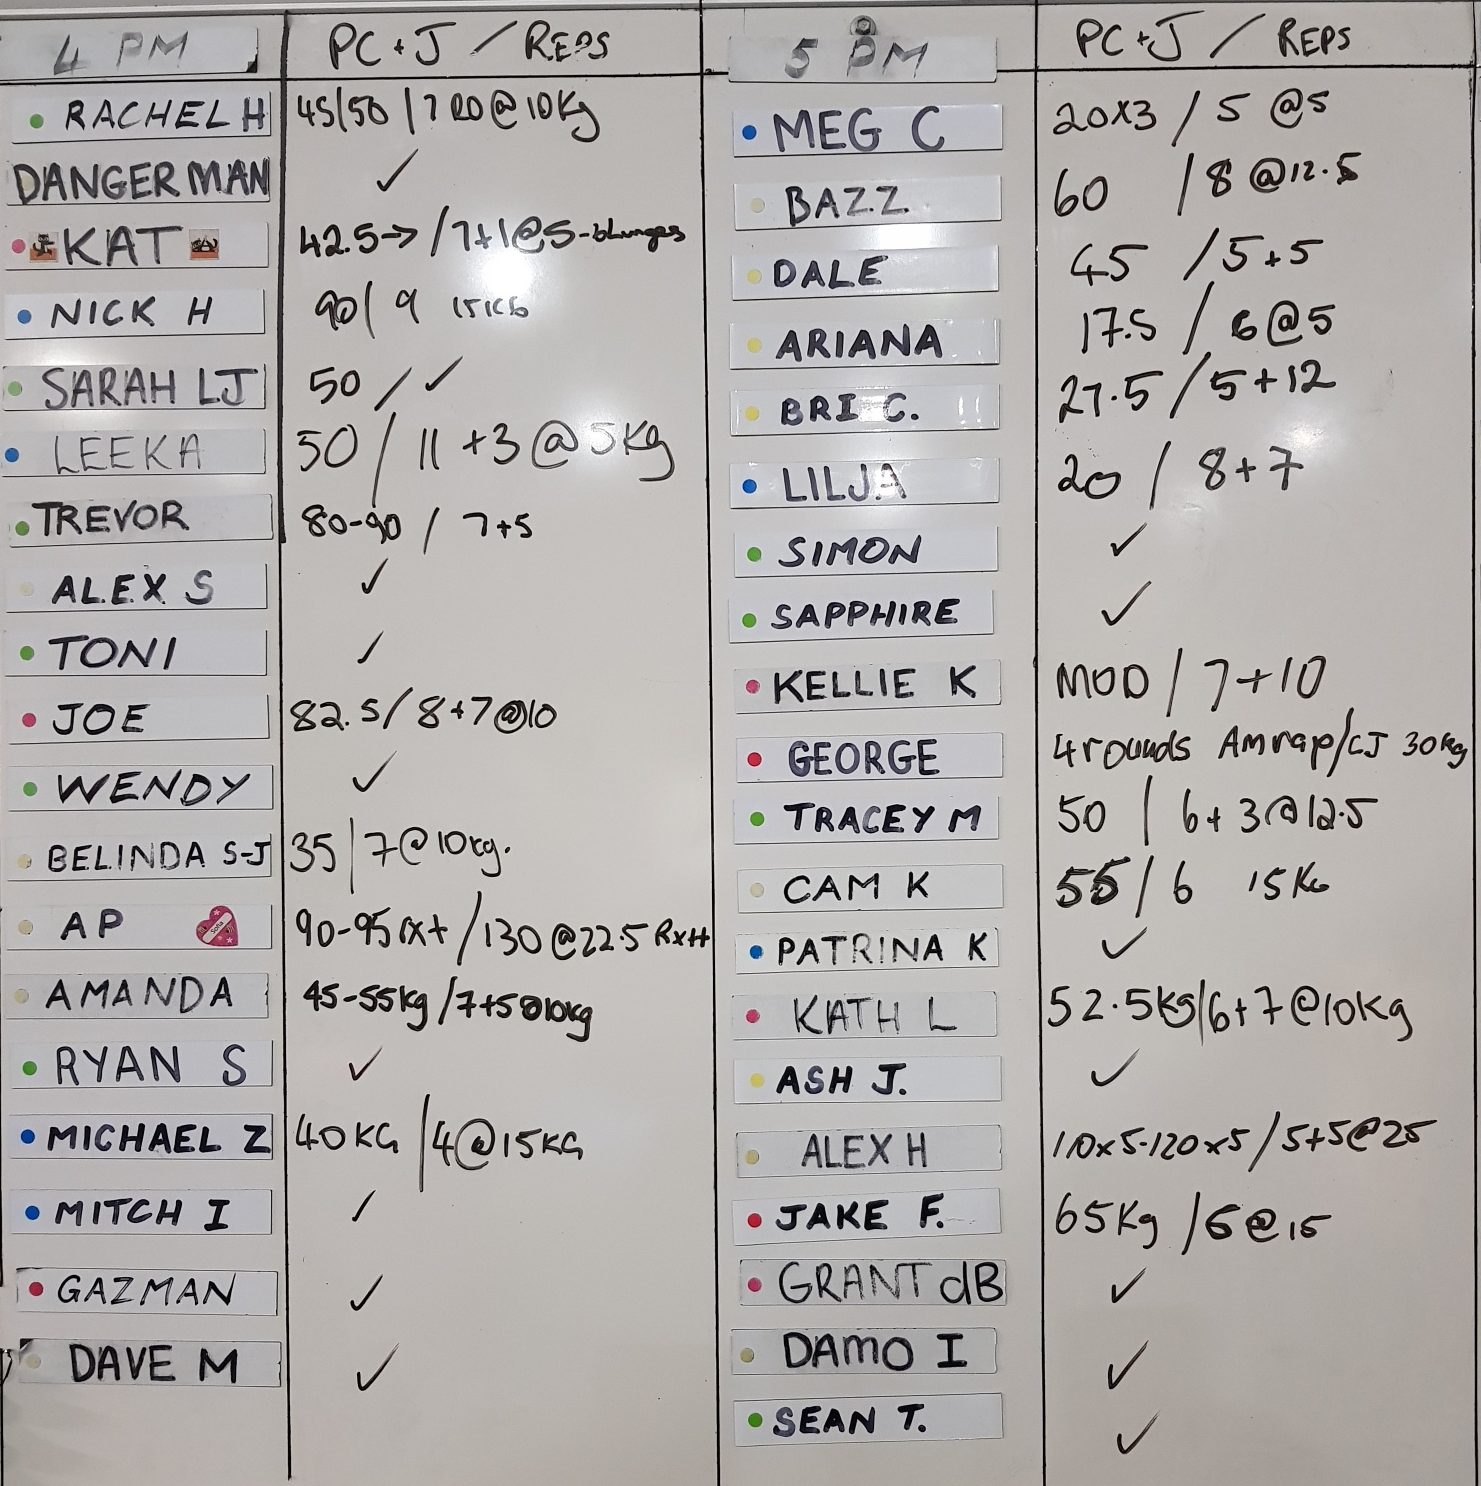 4 PM PC+J / REPS
RACHEL H 45/50 / 7 RD @ 10Kg
DANGERMAN ✓
KAT 42.5→ / 7+1@5-blunges
NICK H 90 / 9 15KG
SARAH LJ 50 / ✓
LEEKA 50 / 11 +3 @ 5Kg
TREVOR 80-90 / 7+5
ALEX S ✓
TONI ✓
JOE 82.5 / 8+7@10
WENDY ✓
BELINDA S-J 35 / 7@10kg.
AP 90-95 rx+ / 130 @22.5 Rx++
AMANDA 45-55kg / 7+5@10kg
RYAN S ✓
MICHAEL Z 40KG / 4@15KG
MITCH I ✓
GAZMAN ✓
DAVE M ✓
5 PM PC+J / REPS
MEG C 20x3 / 5 @5
BAZZ 60 / 8 @12.5
DALE 45 / 5+5
ARIANA 17.5 / 6@5
BRI C. 27.5 / 5+12
LILJA 20 / 8+7
SIMON ✓
SAPPHIRE ✓
KELLIE K MOD / 7+10
GEORGE 4 rounds Amrap/CJ 30kg
TRACEY M 50 / 6+3@12.5
CAM K 55 / 6 15KG
PATRINA K ✓
KATH L 52.5kg/6+7@10Kg
ASH J. ✓
ALEX H 110x5-120x5 / 5+5@25
JAKE F. 65Kg / 6@15
GRANT dB ✓
DAMO I ✓
SEAN T. ✓